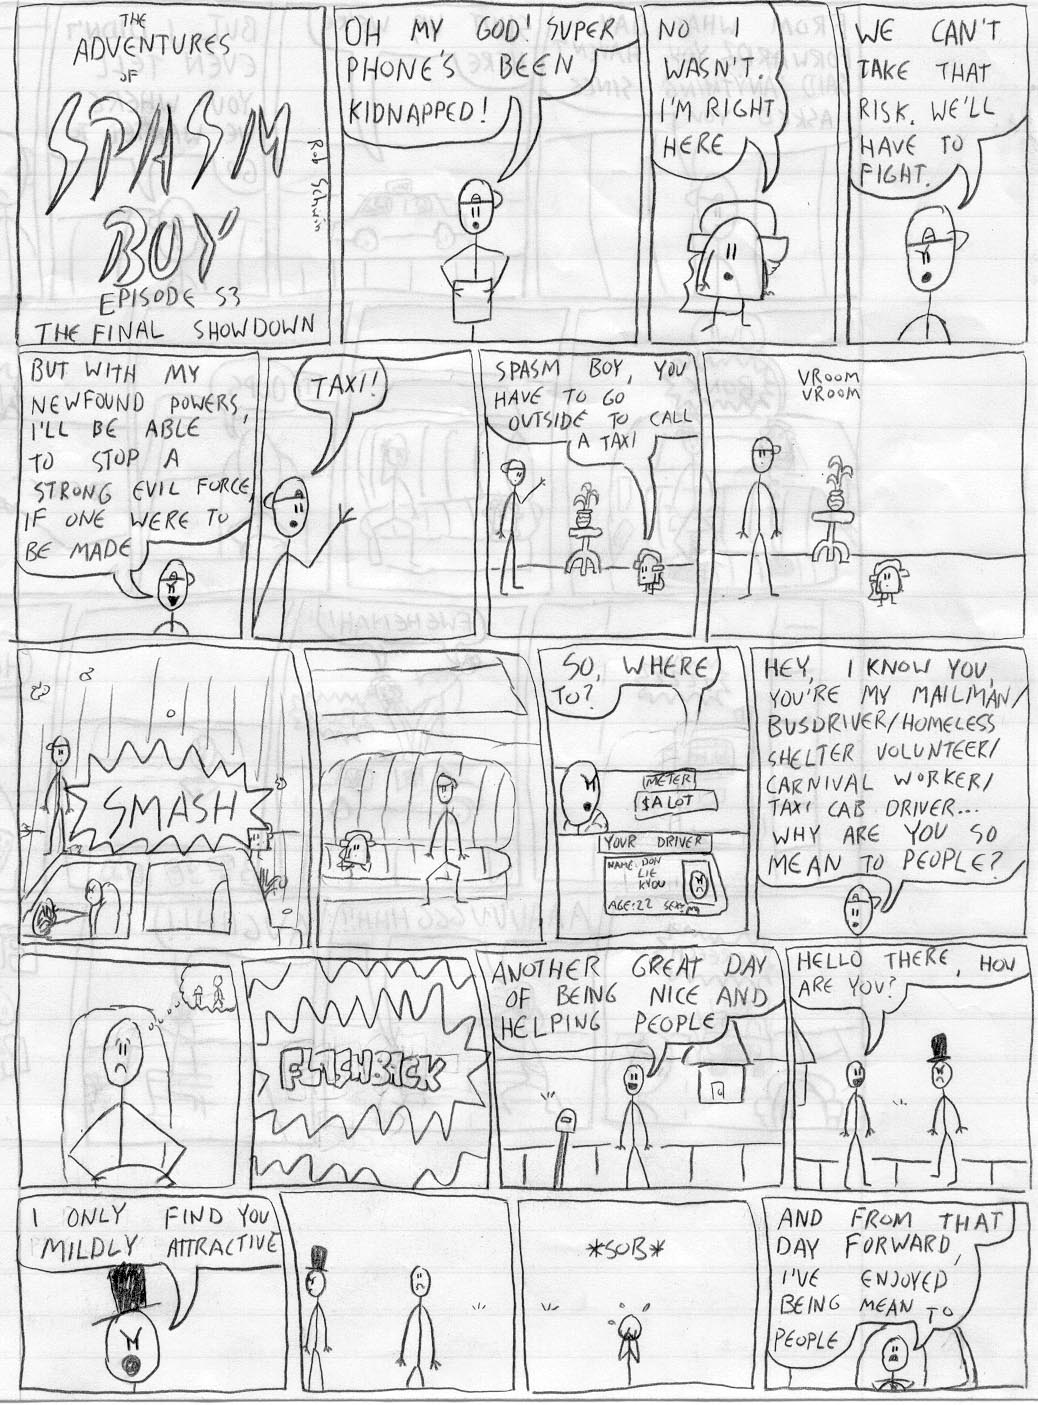 THE
ADVENTURES
OF
SPASM
BOY
Rob Schwin
EPISODE 53
THE FINAL SHOWDOWN
OH MY GOD! SUPER
PHONE'S BEEN
KIDNAPPED!
NO I
WASN'T.
I'M RIGHT
HERE
WE CAN'T
TAKE THAT
RISK. WE'LL
HAVE TO
FIGHT.
BUT WITH MY
NEWFOUND POWERS,
I'LL BE ABLE
TO STOP A
STRONG EVIL FORCE,
IF ONE WERE TO
BE MADE
TAXI!
SPASM BOY, YOU
HAVE TO GO
OUTSIDE TO CALL
A TAXI
VROOM
VROOM
SMASH
SO, WHERE
TO?
METER
$A LOT
YOUR DRIVER
NAME: DON
LIE
KYOU
AGE: 22 SEX: M
HEY, I KNOW YOU,
YOU'RE MY MAILMAN/
BUSDRIVER/HOMELESS
SHELTER VOLUNTEER/
CARNIVAL WORKER/
TAXI CAB DRIVER...
WHY ARE YOU SO
MEAN TO PEOPLE?
FLASHBACK
ANOTHER GREAT DAY
OF BEING NICE AND
HELPING PEOPLE
HELLO THERE, HOW
ARE YOU?
I ONLY FIND YOU
MILDLY ATTRACTIVE
*SOB*
AND FROM THAT
DAY FORWARD,
I'VE ENJOYED
BEING MEAN TO
PEOPLE